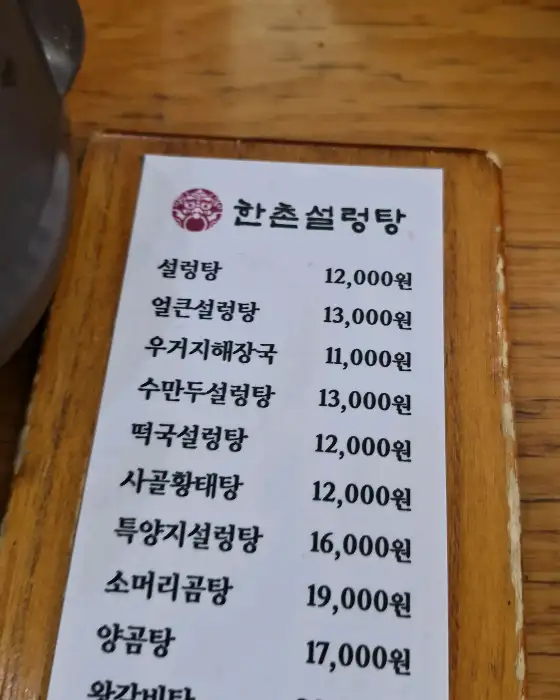 한촌설렁탕
설렁탕 12,000원
얼큰설렁탕 13,000원
우거지해장국 11,000원
수만두설렁탕 13,000원
떡국설렁탕 12,000원
사골황태탕 12,000원
특양지설렁탕 16,000원
소머리곰탕 19,000원
양곰탕 17,000원
왕갈비탕